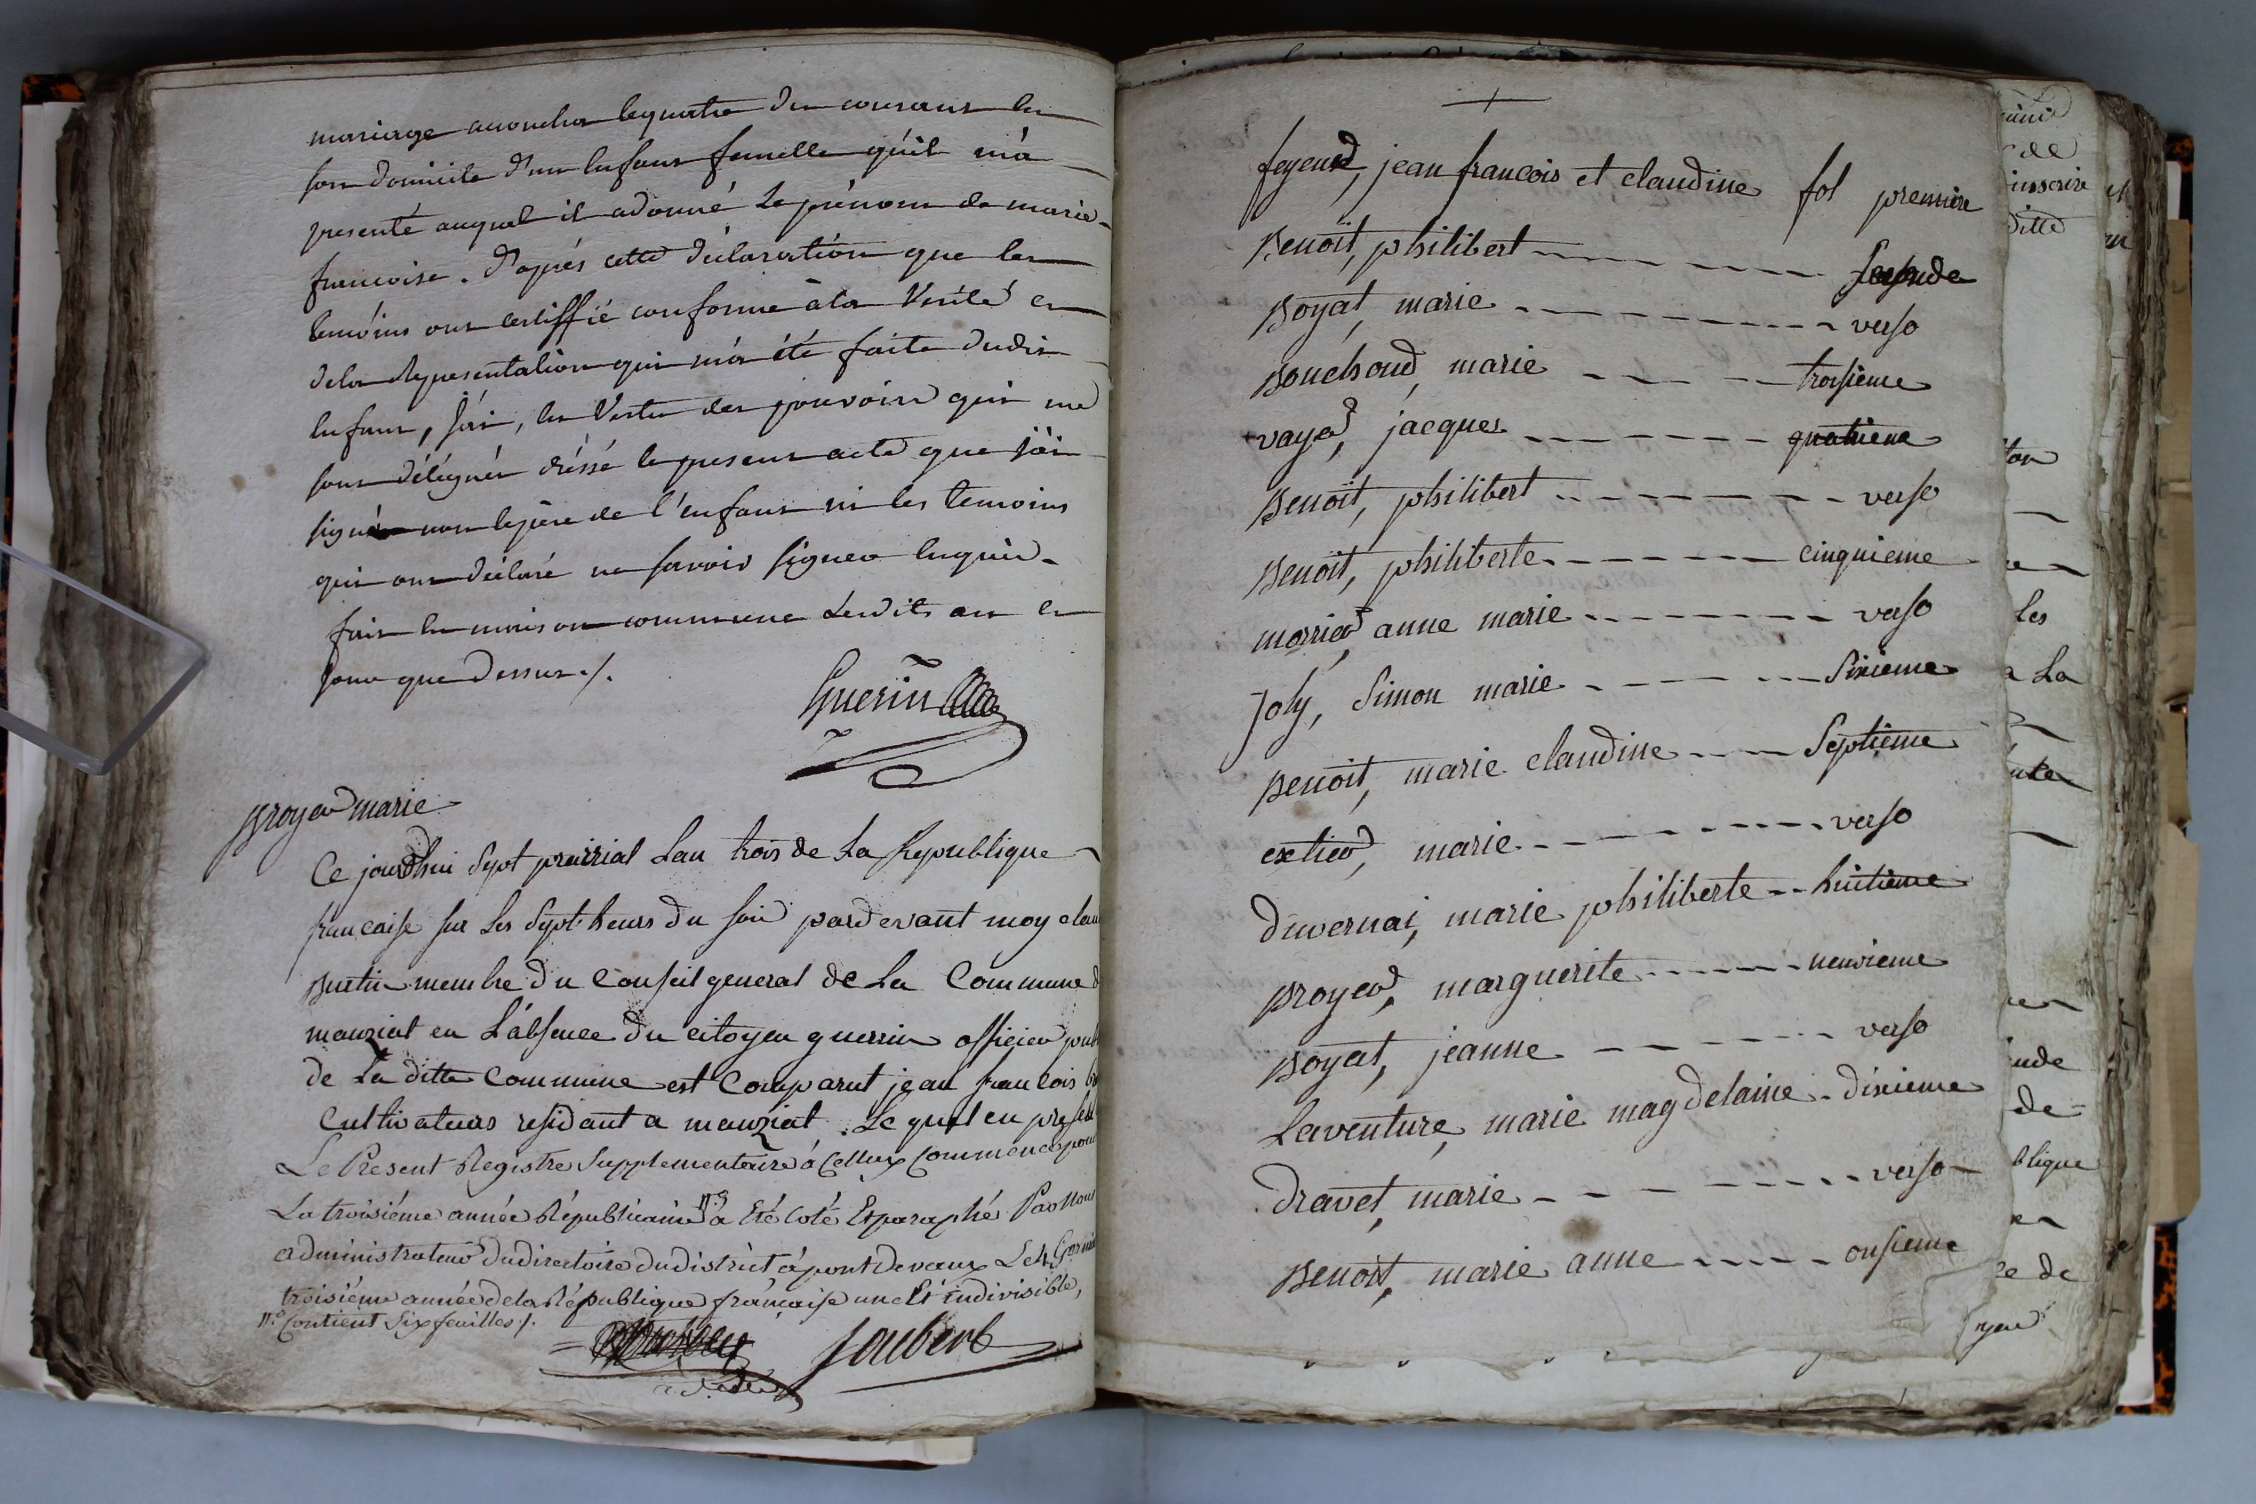 mariage accoucher le quatre du courant en
son domicile d'un enfant femelle qu'il m'a
presenté auquel il a donné le prénom de marie
francoise. d'après cette déclaration que les
temóins ont certiffié conforme à la Vérité et
de la Representation qui m'a été faite dudit
enfant, j'ai, en Vertu des pouvoirs qui me
sont délégués dréssé le present acte que j'ai
signé non le père de l'enfant ni les temoins
qui ont déclaré ne savoir signer enquis
fait en maison commune lesdits an et
jour que dessus ./.
Guerin
Broyer marie
Ce jourdhui Sept prairial Lan trois de La Republique
francaise sur Les Sept heurs du soir pardevant moy
Butin membre du Conseil general de La Commune
manziat en L'absence du citoyen guerrin officier
de La ditte Commune est Comparut jean francois
Cultivateurs residant a manziat. Le quel en
Le Present Registre Supplementaire à Celluy Commencé pour
La troisiéme année Républicaine a Eté Coté Et paraphé Par Nous
administrateur du directoire du district à pont devaux Le 4
troisiéme année de la République française une Et indivisible,
Contient Six feuilles ./.
Joubert
feyeud, jean francois et claudine fol premiere
Benoit, philibert Seconde
Boyat, marie verso
Bouchoud, marie troisieme
vayer, jacques quatrieme
Benoit, philibert verso
Benoit, philiberte cinquieme
morrier, anne marie verso
Joly, Simon marie Sixieme
Benoit, marie claudine Septieme
extier, marie verso
duvernai, marie philiberte huitieme
Broyer, marguerite neuvieme
Boyat, jeanne verso
Laventure, marie magdelaine dixieme
dravet, marie verso
Benoit, marie anne onsieme
de
inscrire
ditte
Les
a La
de
blique
de